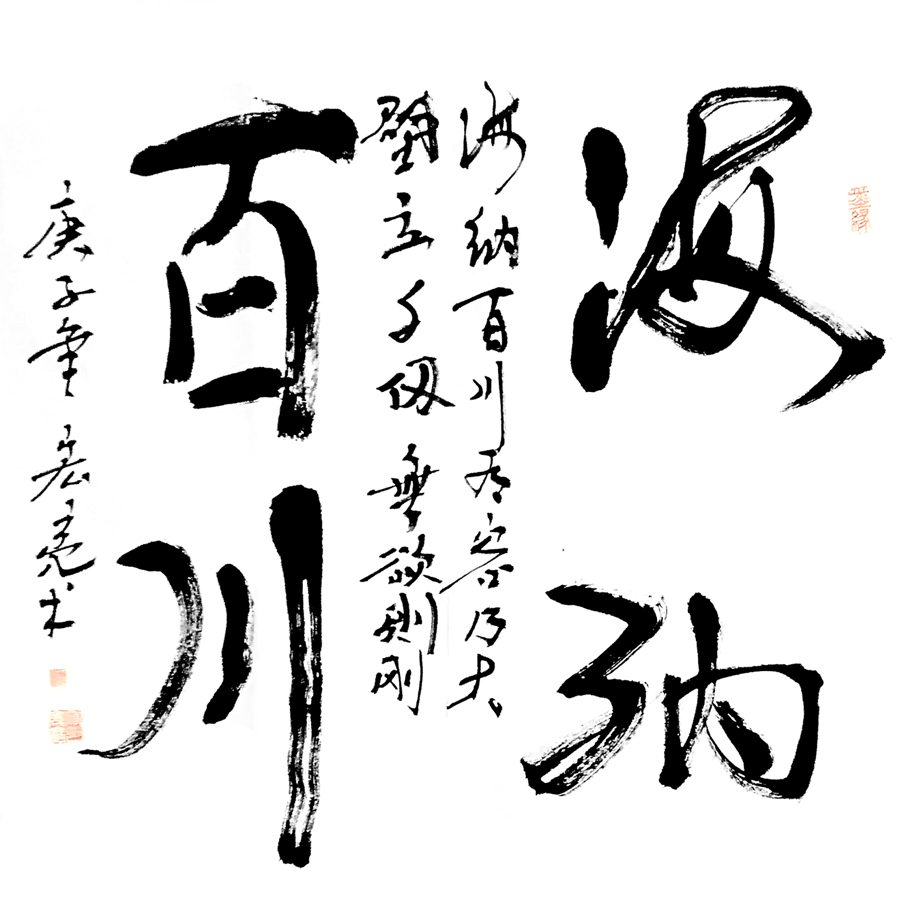 海纳
海纳百川有容乃大
壁立千仞無欲则刚
百川
庚子年宏亮书